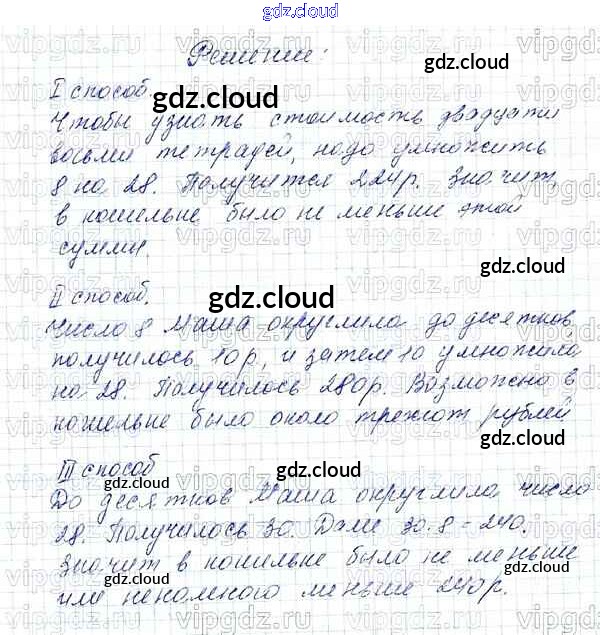 gdz.cloud
Решение:
gdz.cloud
I способ.
gdz.cloud
Чтобы узнать стоимость двадцати
восьми тетрадей, надо умножить
8 на 28. Получится 224р. Значит,
в кошельке было не меньше этой
суммы.
gdz.cloud
II способ.
gdz.cloud
Число 8 Маша округлила до десятков,
получилось 10р, и затем 10 умножила
на 28. Получилось 280р. Возможно в
кошельке было около трехсот рублей
gdz.cloud
III способ
gdz.cloud
До десятков Маша округлила число
28. Получилось 30. Далее 30·8=240.
Значит в кошельке было не меньше
или ненамного меньше 240р.
gdz.cloud
vipgdz.ru